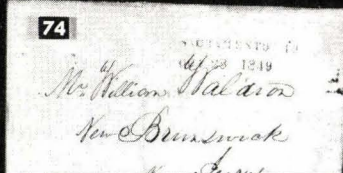 74
SACRAMENTO
1849
Mr. William Waldron
New Brunswick
New Jersey